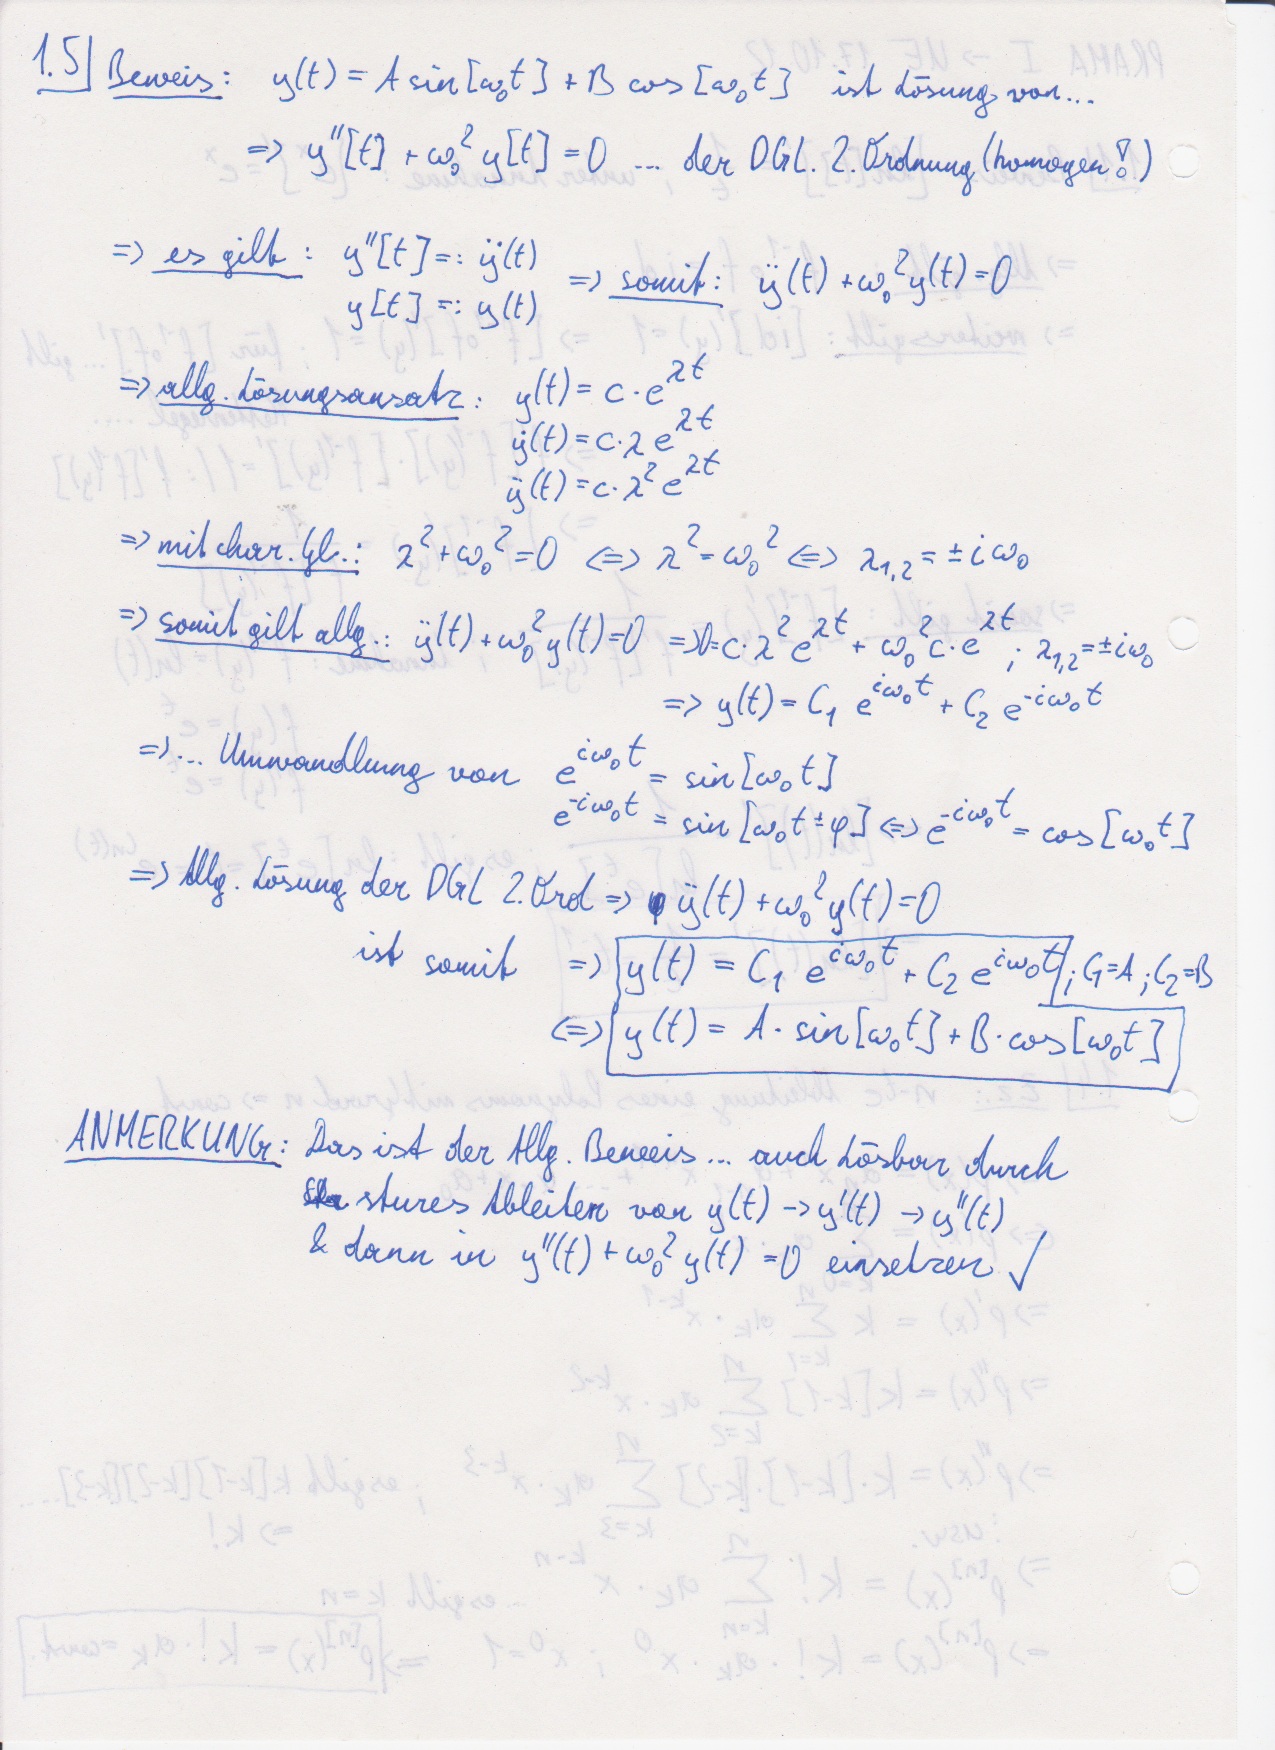 1.5] Beweis: y(t) = A sin[ω₀t] + B cos[ω₀t] ist Lösung von...
=> y''[t] + ω₀² y[t] = 0 ... der DGL. 2. Ordnung (homogen!)
=> es gilt: y''[t] =: ÿ(t)
y[t] =: y(t)
=> somit: ÿ(t) + ω₀² y(t) = 0
=> allg. Lösungsansatz: y(t) = c · e^λt
ẏ(t) = c · λ e^λt
ÿ(t) = c · λ² e^λt
=> mit char. Gl.: λ² + ω₀² = 0 <=> λ² = ω₀² <=> λ₁,₂ = ± i ω₀
=> somit gilt allg.: ÿ(t) + ω₀² y(t) = 0 => 0 = c · λ² e^λt + ω₀² c · e^λt ; λ₁,₂ = ± iω₀
=> y(t) = C₁ e^iω₀t + C₂ e^-iω₀t
=> ... Umwandlung von e^iω₀t = sin[ω₀t]
e^-iω₀t = sin[ω₀t ± φ] <=> e^-iω₀t = cos[ω₀t]
=> Allg. Lösung der DGL 2. Ord => ÿ(t) + ω₀² y(t) = 0
ist somit => y(t) = C₁ e^iω₀t + C₂ e^iω₀t ; C₁ = A ; C₂ = B
<=> y(t) = A · sin[ω₀t] + B · cos[ω₀t]
ANMERKUNG: Das ist der Allg. Beweis... auch Lösbar durch
stures Ableiten von y(t) -> y'(t) -> y''(t)
& dann in y''(t) + ω₀² y(t) = 0 einsetzen ✓